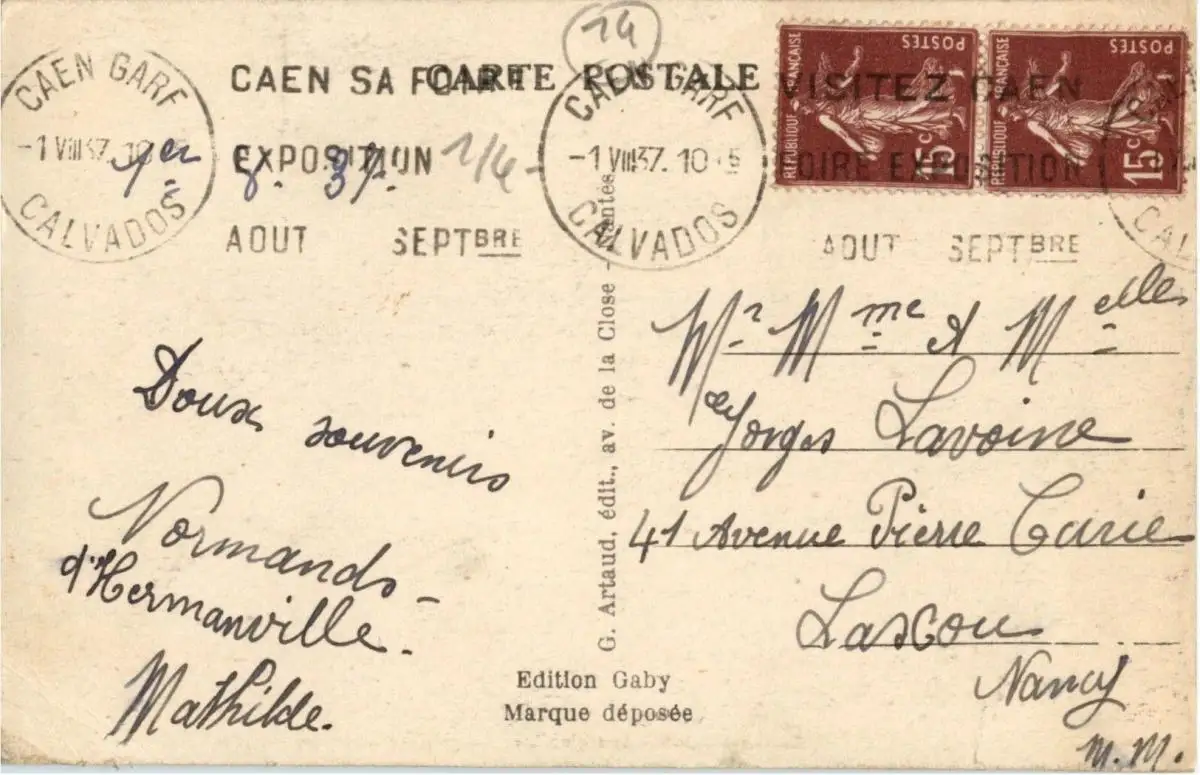 14
CAEN GARE
-1 VIII 37. 10
CALVADOS
CAEN SA FOIRE
EXPOSITION
AOUT SEPTBRE
1er 8. 37.
1/4-
CARTE POSTALE
CAEN GARE
-1 VIII 37. 10 15
CALVADOS
VISITEZ CAEN
FOIRE EXPOSITION
AOUT SEPTBRE
RÉPUBLIQUE FRANÇAISE
POSTES
15c
RÉPUBLIQUE FRANÇAISE
POSTES
15c
Doux souvenirs
Normands
d'Hermanville.
Mathilde.
G. Artaud, édit., av. de la Close - Nantes
Edition Gaby
Marque déposée
Mr Mme & Melle
Gorges Lavoine
41 Avenue Pierre Curie
Laxou
Nancy
M. M.